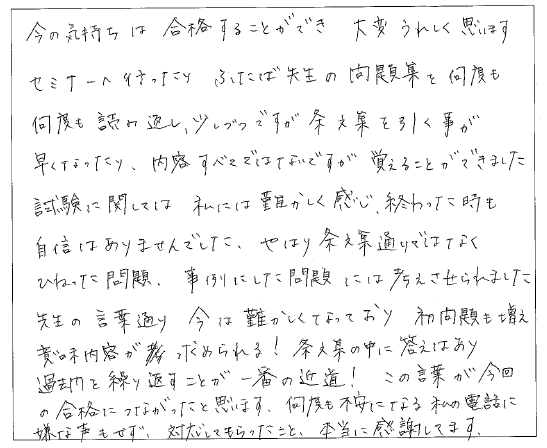 今の気持ちは 合格することができ 大変うれしく思います
セミナーへ行ったり ふたば先生の問題集を何度も
何度も読み返し、少しづつですが条文集を引く事が
早くなったり、内容すべてではないですが 覚えることができました
試験に関しては 私には難かしく感じ、終わった時も
自信はありませんでした、やはり条文集通りではなく
ひねった問題、事例にした問題には考えさせられました
先生の言葉通り 今は難かしくなっており 初問題も増え
意味内容が 求められる！条文集の中に答えはあり
過去問を繰り返すことが一番の近道！この言葉が今回
の合格につながったと思います、何度も不安になる私の電話に
嫌な声もせず、対応してもらったこと、本当に感謝してます、